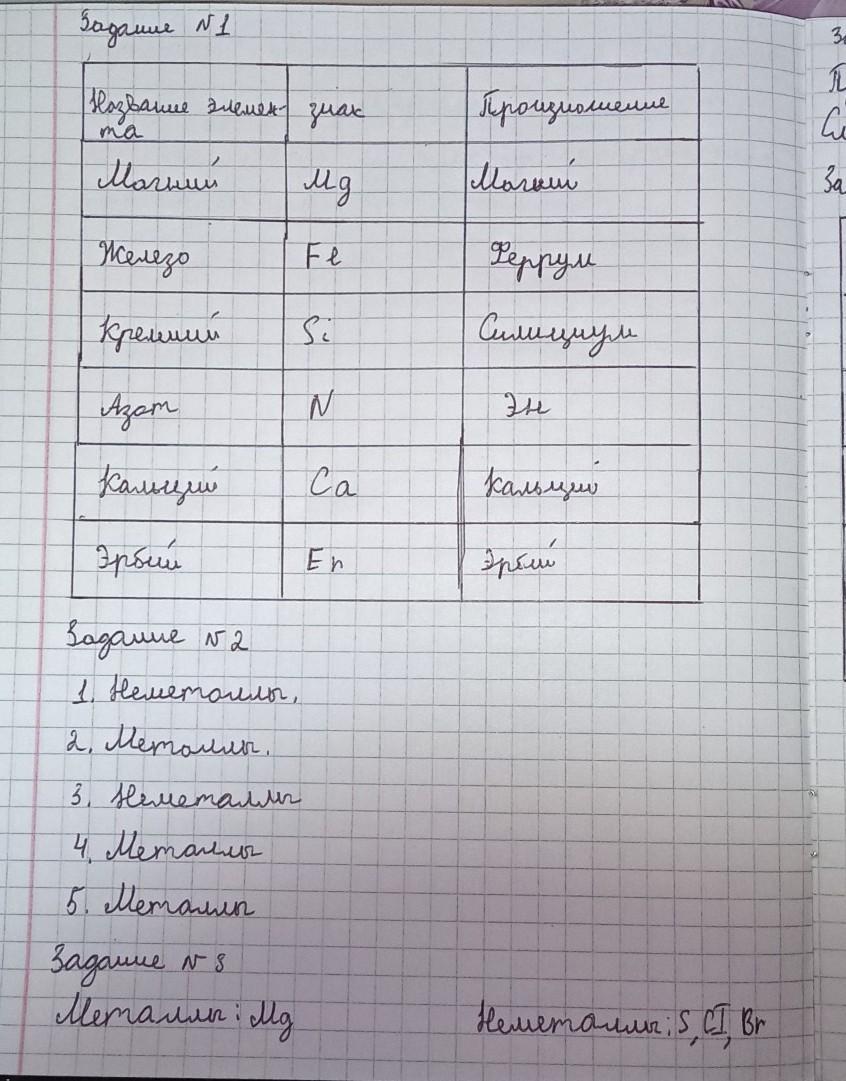 Задание №1
Название элемен-
та
знак
Произношение
Магний Mg Магний
Железо Fe Феррум
Кремний Si Силициум
Азот N Эн
Кальций Ca Кальций
Эрбий Er Эрбий
Задание №2
1. Неметаллы,
2. Металлы.
3. Неметаллы
4. Металлы
5. Металлы
Задание №3
Металлы: Mg Неметаллы: S, Cl, Br
За